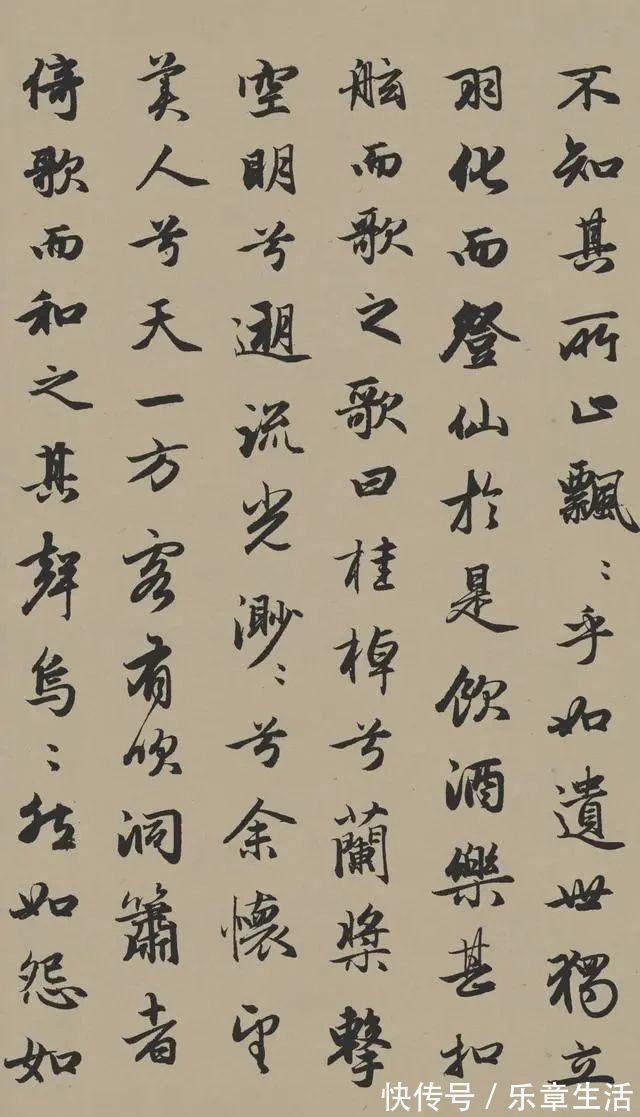 不知其所止飄〻乎如遺世獨立
羽化而登仙於是飲酒樂甚扣
舷而歌之歌曰桂棹兮蘭槳擊
空明兮遡流光渺〻兮余懷望
美人兮天一方客有吹洞簫者
倚歌而和之其聲烏〻然如怨如
快传号/乐章生活